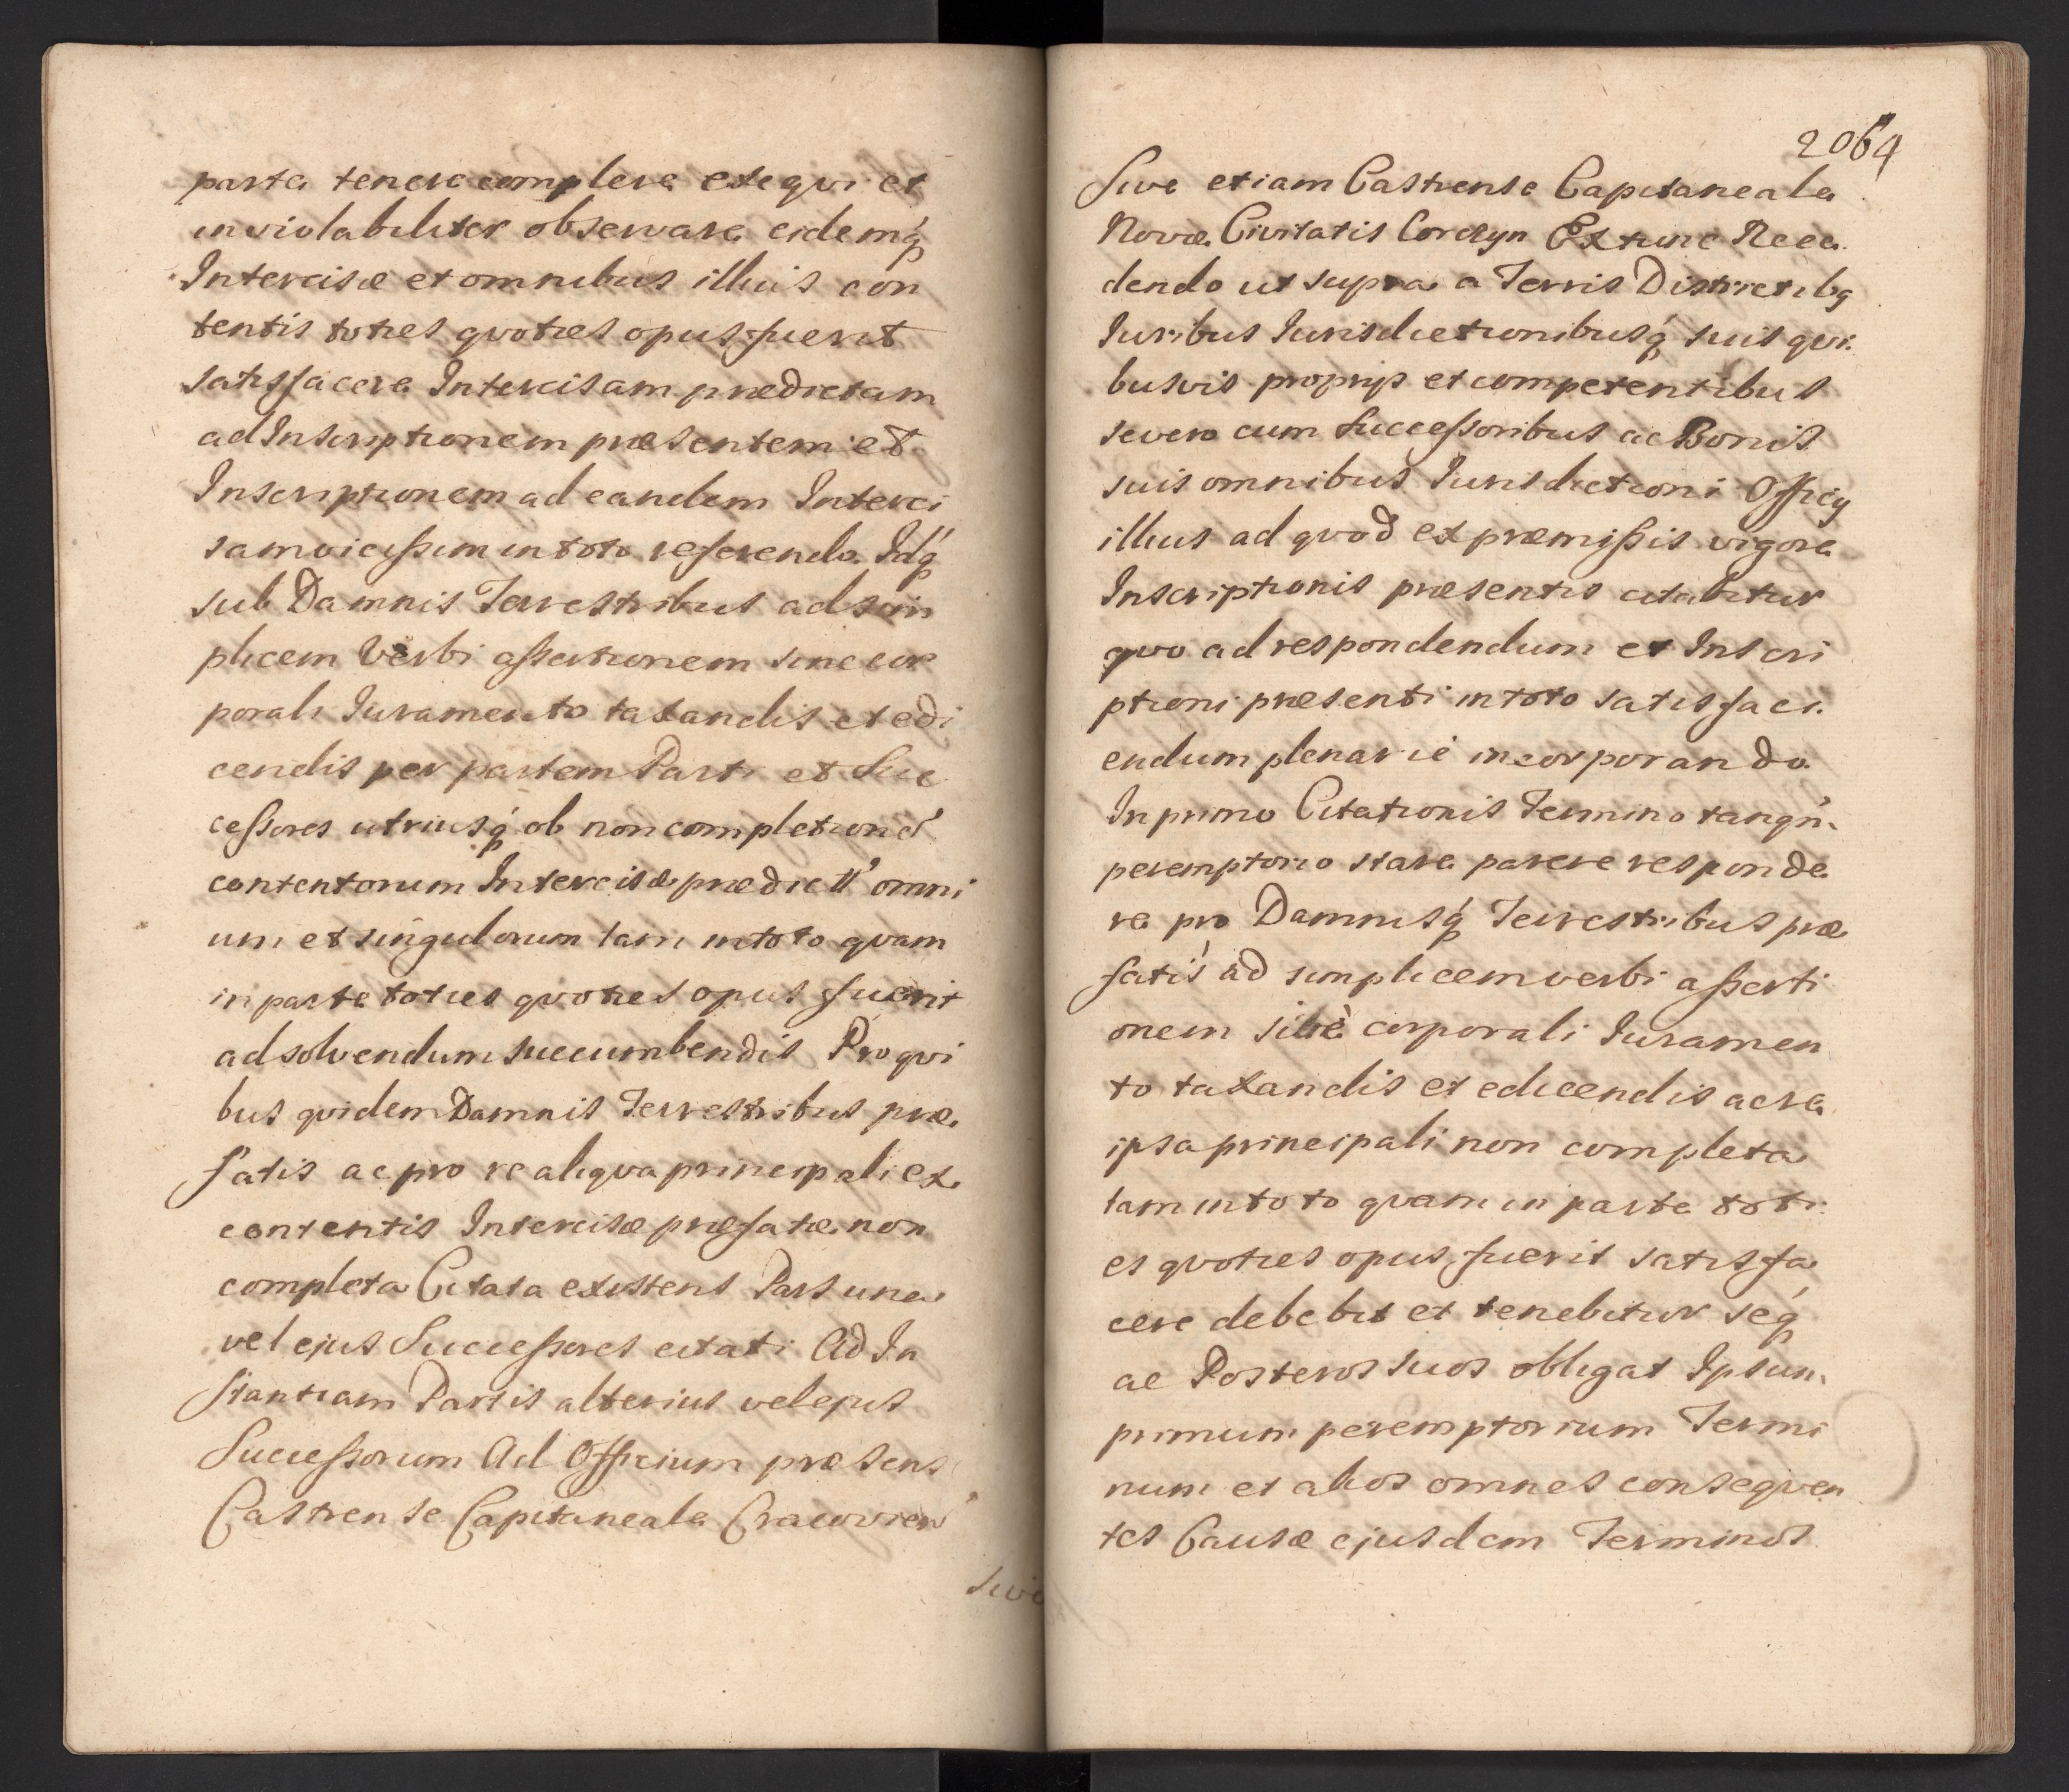 parte tenere complere exequi et
inviolabiliter observare eidemq́
Intercisæ et omnibus illius con
tentis toties qvoties opus fuerit
satisfacere Intercisam prædictam
ad Inscriptionem præsentem et
Inscriptionem ad eandem Interci
sam vicissim in toto referendo. Idq́
sub Damnis Terrestribus ad sim
plicem Verbi assertionem sine cor
porali Iuramento taxandis et edi
cendis per partem Parti et Suc
cessores utriusq́ ob non completione
contentorum Intercisæ prædictæ omni
um et singulorum tam in toto qvam
in parte toties qvoties opus fuerit
ad solvendum succumbendis Pro qvi
bus qvidem Damnis Terrestribus præ
fatis ac pro re aliqva principali ex
contentis Intercisæ præfatæ non
completa Citata existens Pars una
vel ejus Successores citati Ad In
stantiam Partis alterius vel ejus
Successorum Ad Officium præsens
Castrense Capitaneale Cracovien
sive
2064
Sive etiam Castrense Capitaneale
Novæ Civitatis Korczyn Extunc Rece
dendo ut supra a Terris Districtibq
Iuribus Iurisdictionibusq́ suis qvi
busvis proprijs et competentibus
severo cum Successoribus ac Bonis
suis omnibus Iurisdictioni Officij
illius ad qvod ex præmissis vigore
Inscriptionis præsentis citabitur
qvo ad respondendum et Inscri
ptioni præsenti in toto satisfaci
endum plenarie incorporando
In primo Citationis Termino tanqn̄
peremptorio stare parere responde
re pro Damnisq́ Terrestribus præ
fatis ad simplicem verbi asserti
onem sine corporali Iuramen
to taxandis et edicendis ac re
ipsa principali non completa
tam in toto qvam in parte toti
es qvoties opus fuerit satisfa
cere debebit et tenebitur seq́
ac Posteros suos obligat Ipsum
primum peremptorium Termi
num et alios omnes conseqven
tes Causæ ejusdem Terminos